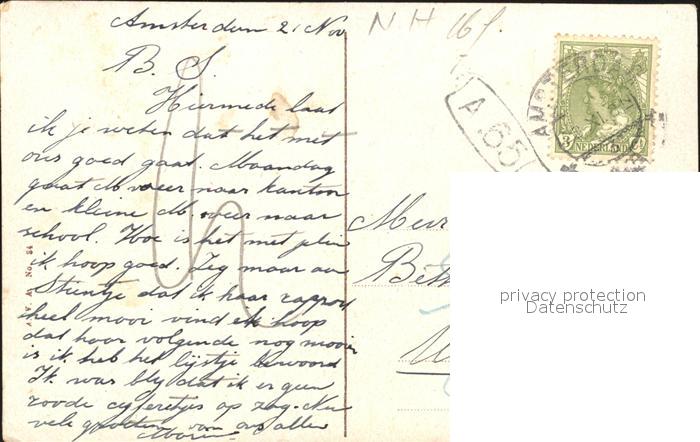 Amsterdam 2 Nov
B. S.
Hiermede laat
ik je weten dat het met
ons goed gaat. Maandag
gaat M weer naar kantoor
en kleine M. weer naar
school. Hoe is het met
ik hoop goed. Zeg maar aan
Stientje dat ik haar rapport
heel mooi vind en hoop
dat haar volgende nog mooier
is ik heb het lijstje bewaard
Ik was blij dat ik er geen
roode cijfertjes op zag. Nu
vele groeten van ons allen
N H 16
A.65
AMSTERDAM
3 NEDERLAND ct
A. V. A. No. 84
privacy protection
Datenschutz